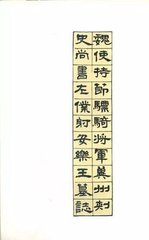 魏使持節驃騎將軍冀州刺
史尚書左僕射安樂王墓誌